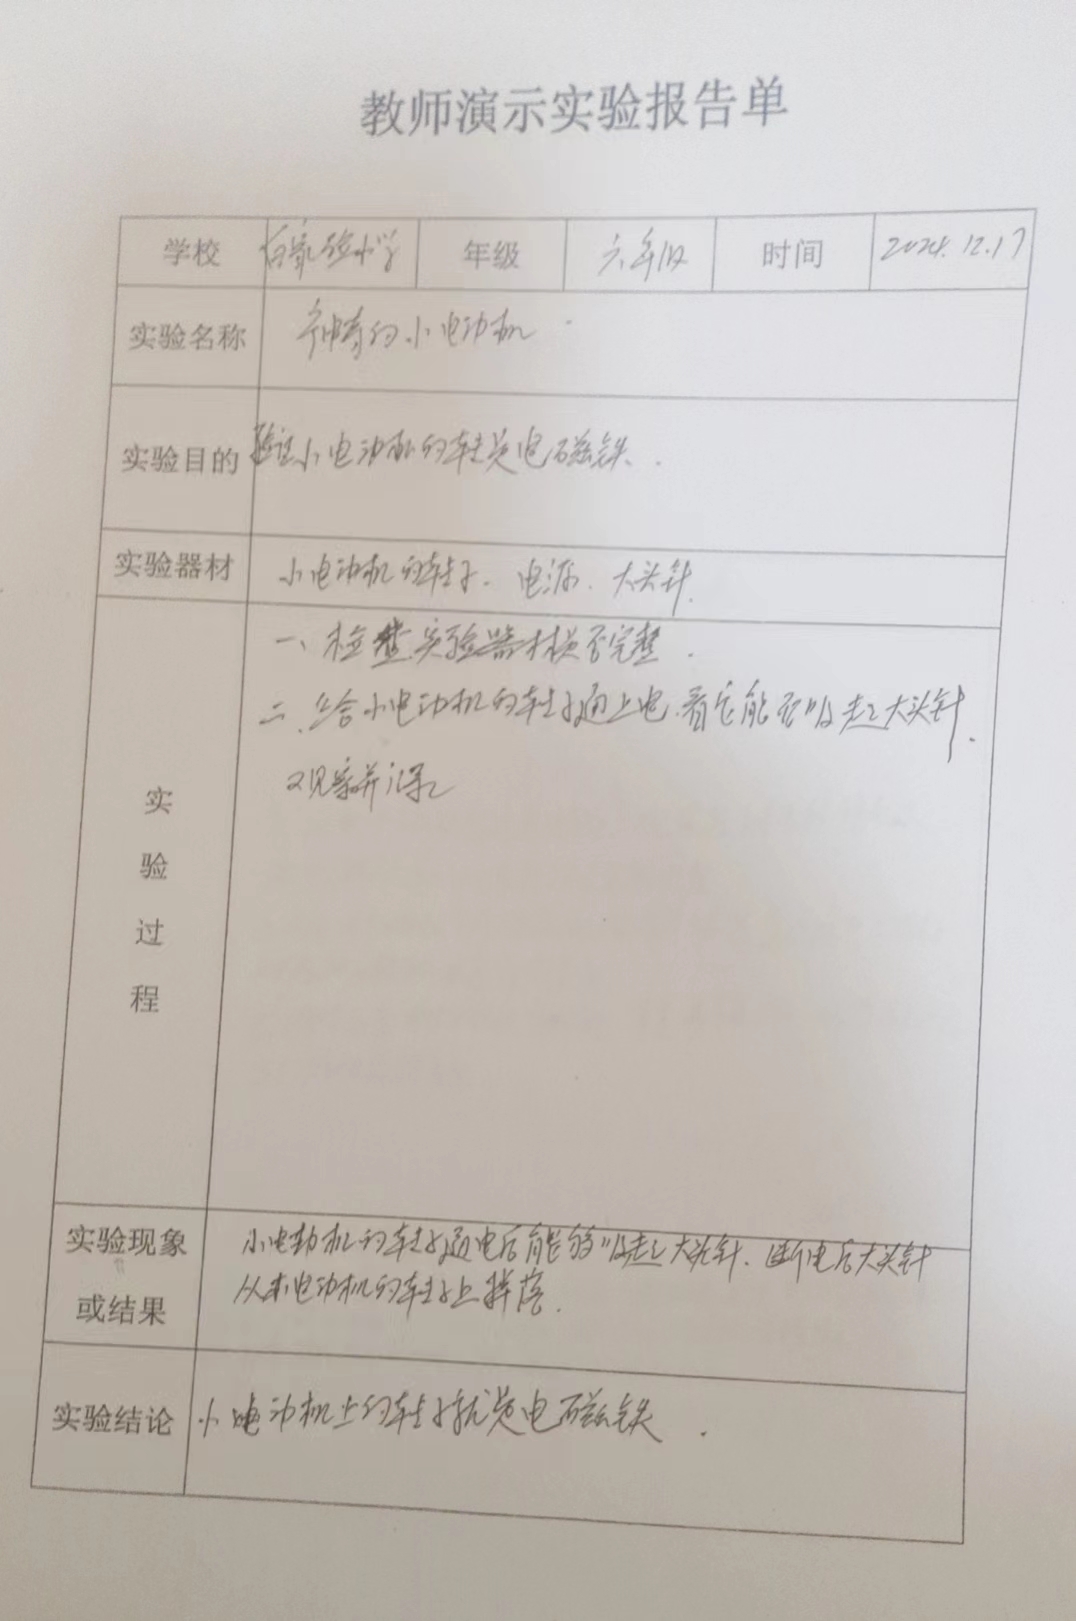 教师演示实验报告单
学校 实验小学 年级 六年级 时间 2024.12.17
实验名称 神奇的小电动机
实验目的 验证小电动机的转子是电磁铁.
实验器材 小电动机的转子、电源、大头针
一、检查实验器材是否完整.
二、给小电动机的转子通上电.看它能否吸起大头针.
观察并记录
实验过程
实验现象或结果
小电动机的转子通电后能够吸起大头针.断电后大头针
从小电动机的转子上掉落.
实验结论 小电动机上的转子就是电磁铁.